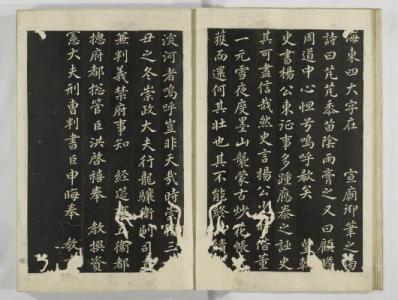 海東四大字在 宣廟御筆之南
詩曰芃芃黍苗陰雨膏之又曰顧瞻
周道中心怛兮嗚呼欷矣
史書楊公東征事多踵應泰之誣史
其可盡信哉然史言楊公
一元雪夜度墨山襲蒙古炒花帳
獲而還何其壯也其不能
涘河者嗚呼豈非天哉時
丑之冬崇政大夫行龍驤衛副司
兼判義禁府事知 經筵 衛都
摠府都摠管臣洪啓禧奉 教撰資
憲大夫刑曹判書臣申晦奉 教